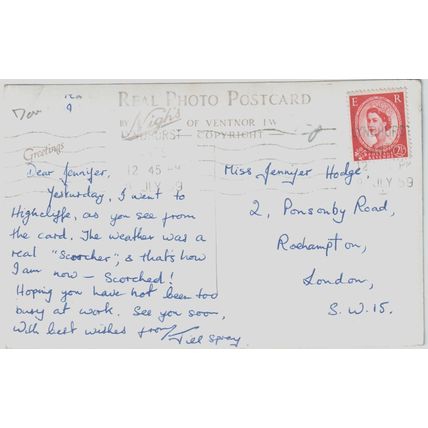 REAL PHOTO POSTCARD
BY Nigh's OF VENTNOR I.W
COPYRIGHT
Greetings
E R
2½
12 45 PM
JLY 59
Dear Jennifer,
Yesterday, I went to
Highcliffe, as you see from
the card. The weather was a
real "Scorcher", & that's how
I am now – Scorched!
Hoping you have not been too
busy at work. See you soon,
With best wishes from
Jill Spray
Miss Jennifer Hodge,
2, Ponsonby Road,
Roehampton,
London,
S.W.15.